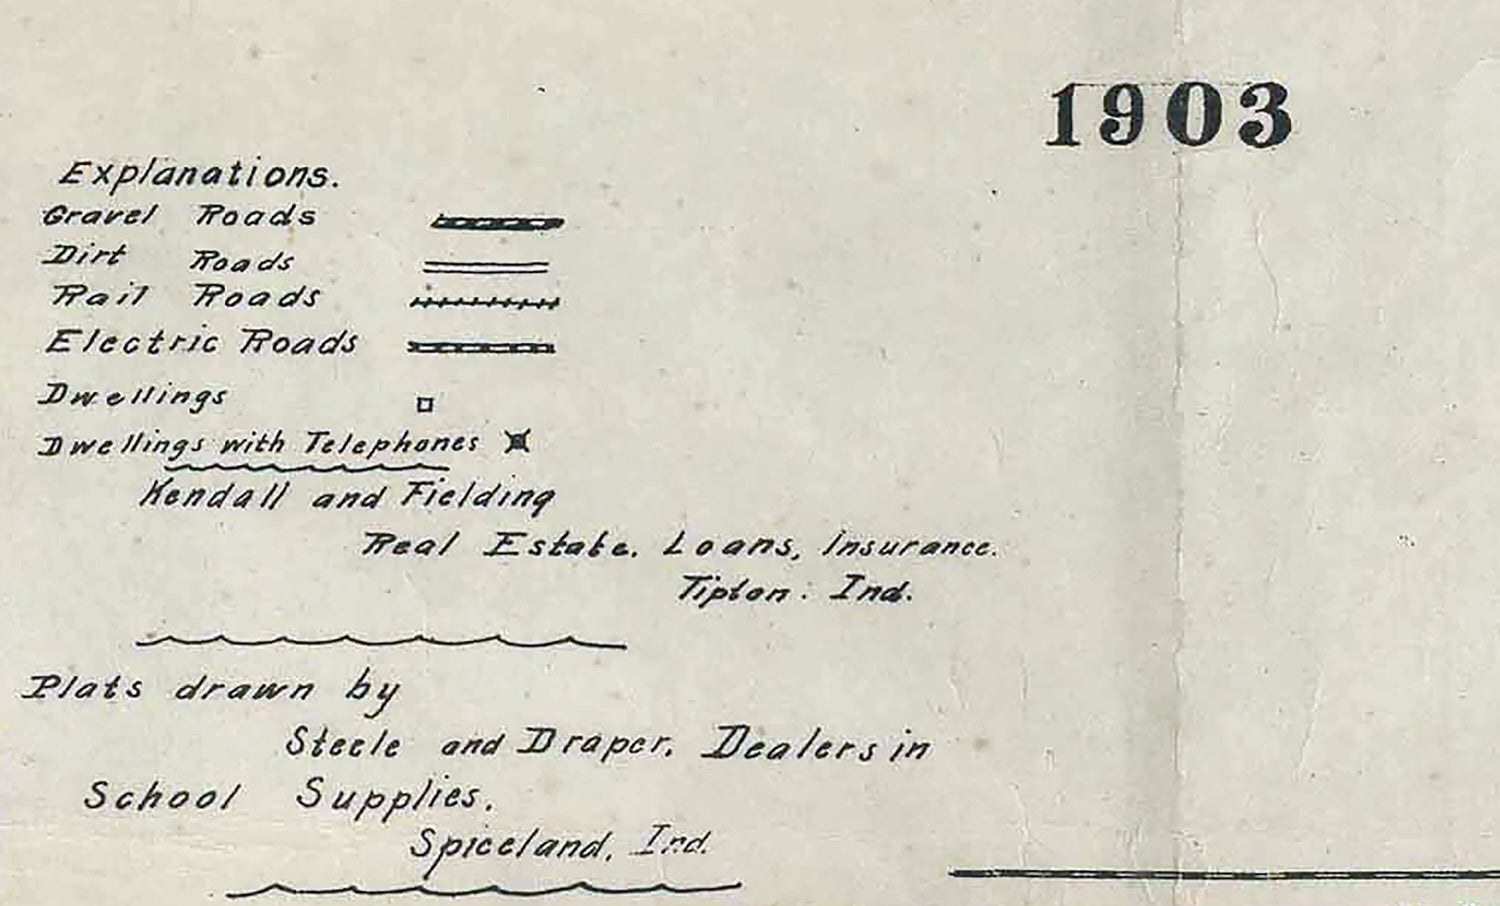 1903
Explanations.
Gravel Roads
Dirt Roads
Rail Roads
Electric Roads
Dwellings
Dwellings with Telephones
Kendall and Fielding
Real Estate. Loans, Insurance.
Tipton. Ind.
Plats drawn by
Steele and Draper. Dealers in
School Supplies.
Spiceland, Ind.